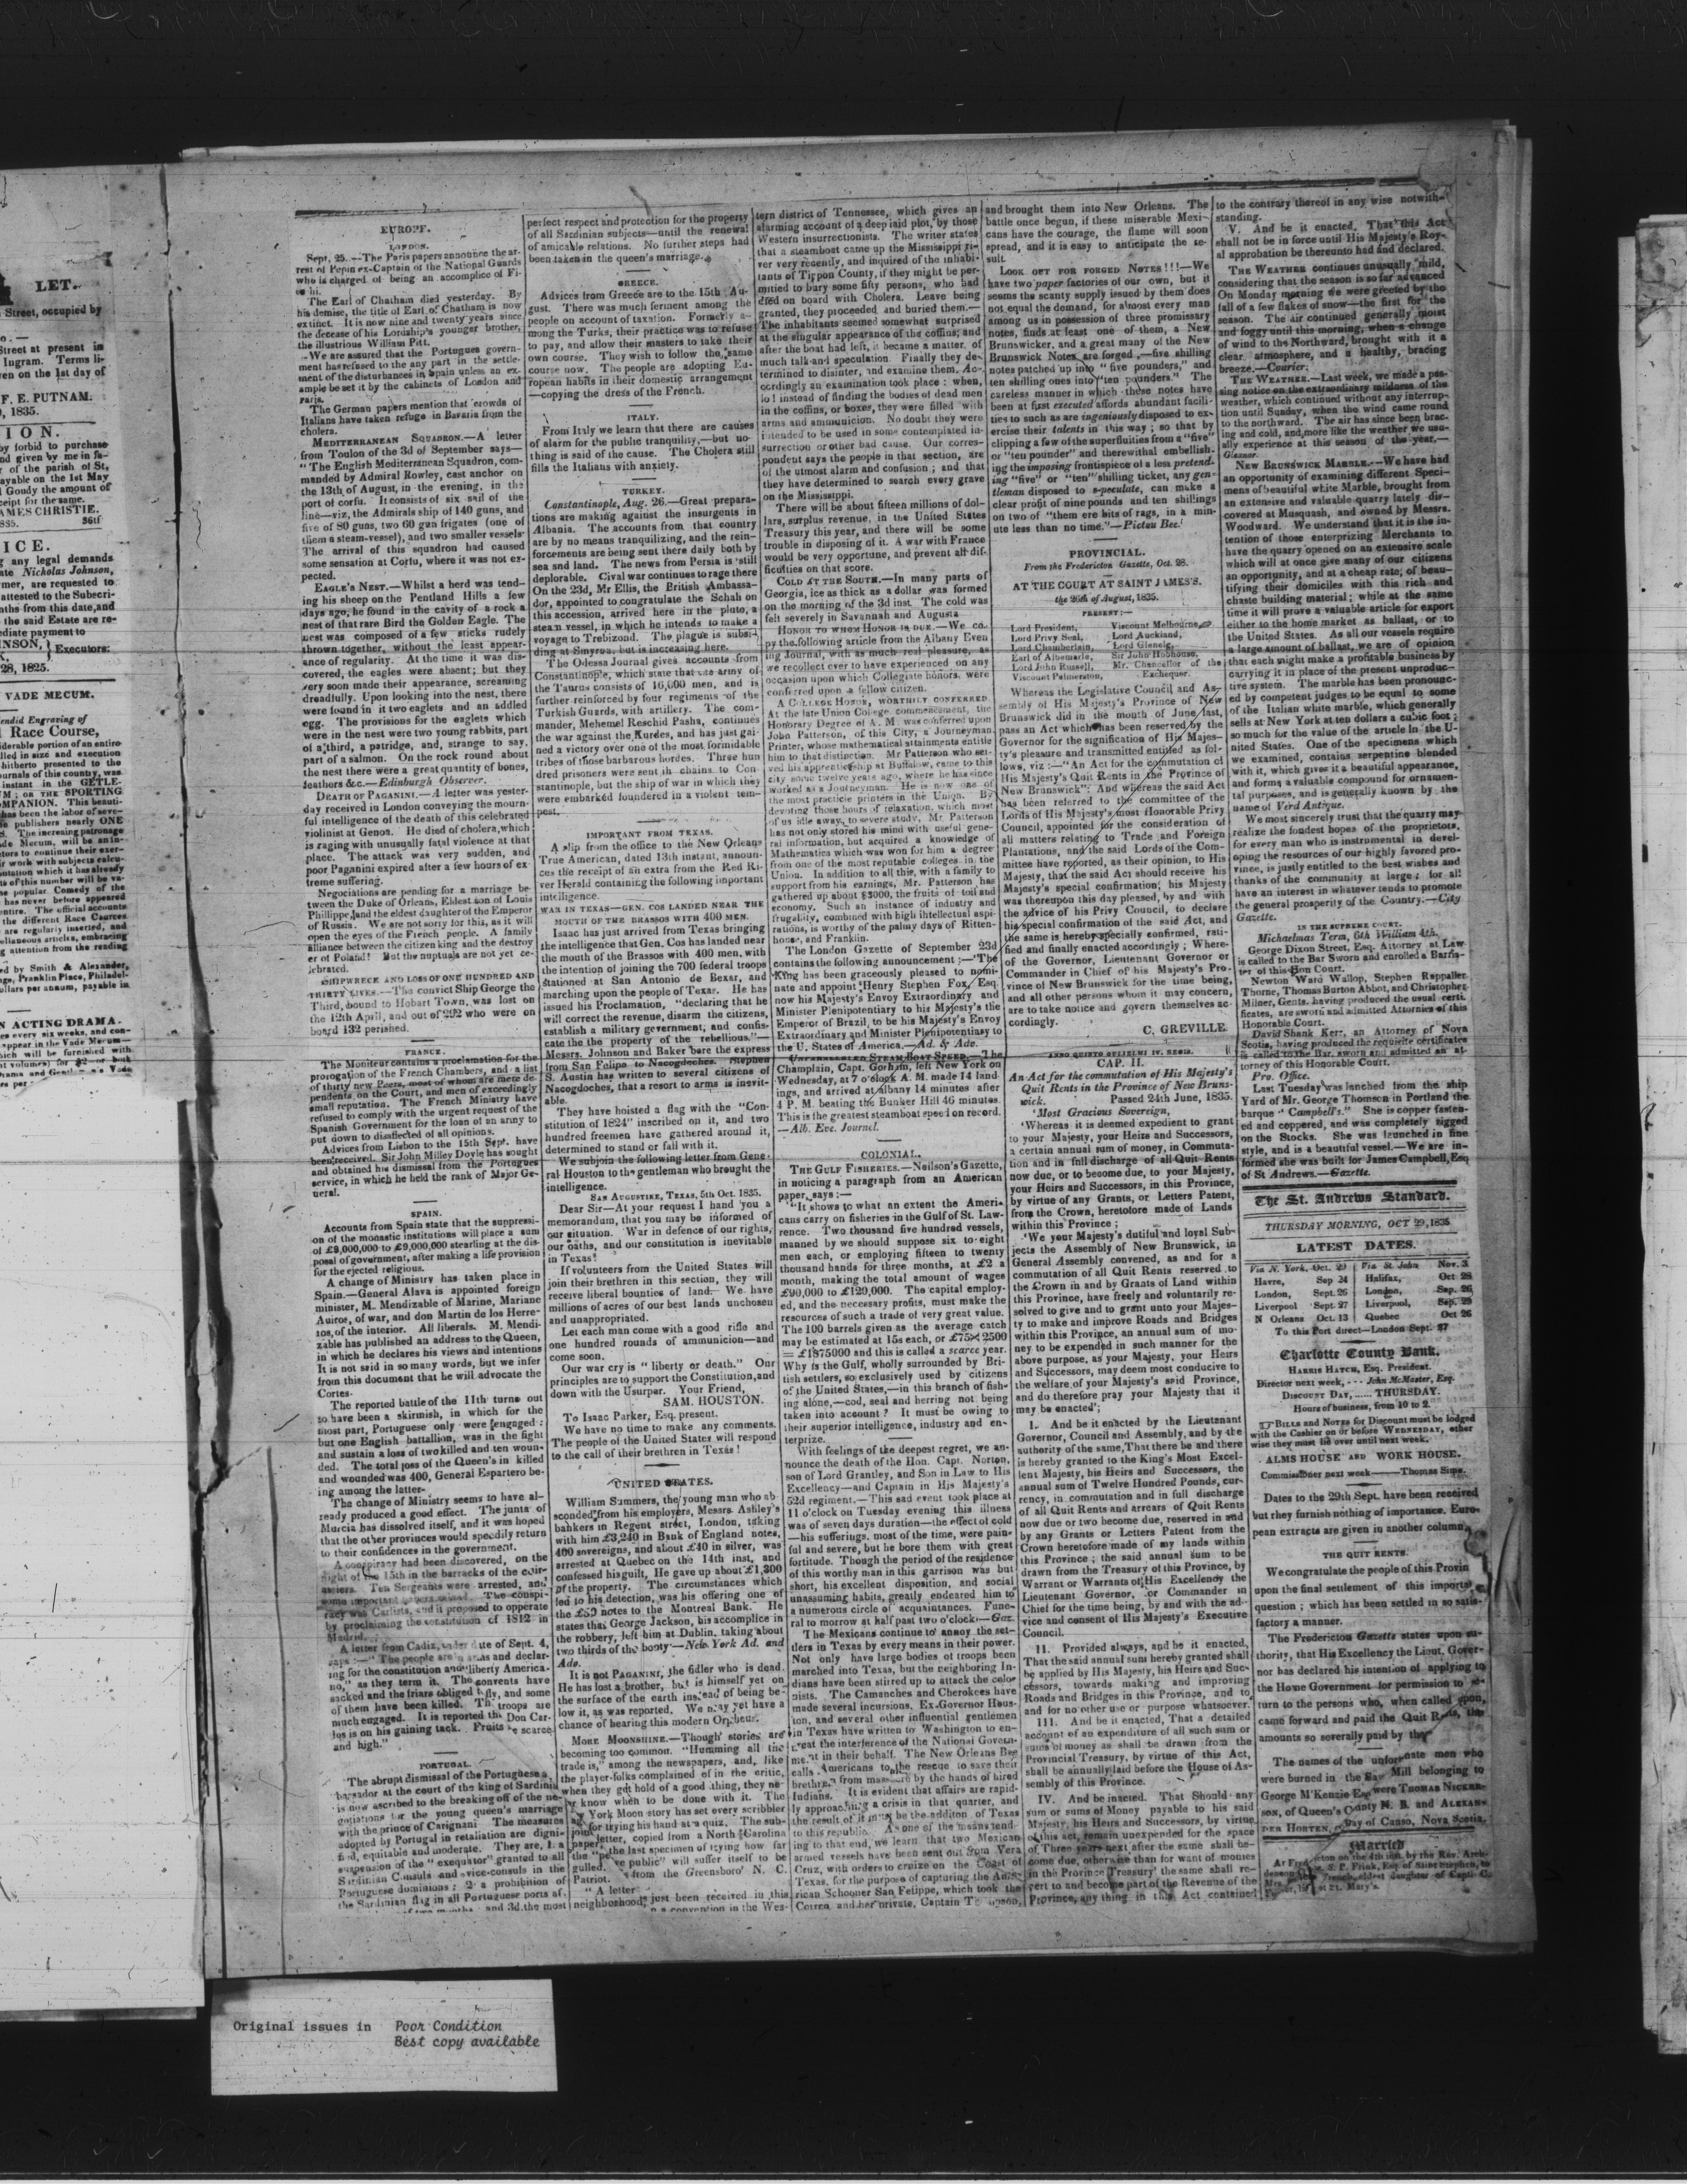 LET.
Street, occupied by
Street at present in
Ingram. Terms li-
en on the 1st day of
F. E. PUTNAM.
, 1835.
ION.
by forbid to purchase
nd given by me in fa-
of the parish of St,
ayable on the 1st May
Goudy the amount of
ceipt for the same.
AMES CHRISTIE.
835. 36tf
ICE.
any legal demands
ate Nicholas Johnson,
mer, are requested to
attested to the Subscri-
nths from this date,and
the said Estate are re-
ediate payment to
NSON, } Executors:
28, 1825.
VADE MECUM.
endid Engraving of
Race Course,
N ACTING DRAMA.
EUROPE.
LONDON.
Sept, 25.—The Paris papers announce the ar-
rest of Pepin ex-Captain of the National Guards
who is charged of being an accomplice of Fi-
es hi.
The Earl of Chatham died yesterday. By
his demise, the title of Earl of Chatham is now
extinct. It is now nine and twenty years since
the decease of his Lordship's younger brother,
the illustrious William Pitt.
We are assured that the Portugues govern-
ment has refused to the any part in the settle-
ment of the disturbances in Spain unless an ex-
ample be set it by the cabinets of London and
Paris.
The German papers mention that crowds of
Italians have taken refuge in Bavaria from the
cholera.
MEDITERRANEAN SQUADRON.—A letter
from Toulon of the 3d of September says—
"The English Mediterranean Squadron, com-
manded by Admiral Rowley, cast anchor on
the 13th of August, in the evening, in the
port of corfu. It consists of six sail of the
line—viz, the Admirals ship of 140 guns, and
five of 80 guns, two 60 gun frigates (one of
them a steam-vessel), and two smaller vessels·
The arrival of this squadron had caused
some sensation at Corfu, where it was not ex-
pected.
EAGLE'S NEST.—Whilst a herd was tend-
ing his sheep on the Pentland Hills a few
days ago, he found in the cavity of a rock a
nest of that rare Bird the Golden Eagle. The
nest was composed of a few sticks rudely
thrown together, without the least appear-
ance of regularity. At the time it was dis-
covered, the eagles were absent; but they
very soon made their appearance, screaming
dreadfully. Upon looking into the nest, there
were found in it two eaglets and an addled
egg. The provisions for the eaglets which
were in the nest were two young rabbits, part
of a third, a patridge, and, strange to say,
part of a salmon. On the rock round about
the nest there were a great quantity of bones,
feathers &c.—Edinburgh Observer.
DEATH OF PAGANINI.—A letter was yester-
day received in London conveying the mourn-
ful intelligence of the death of this celebrated
violinist at Genoa. He died of cholera, which
is raging with unusually fatal violence at that
place. The attack was very sudden, and
poor Paganini expired after a few hours of ex-
treme suffering.
Negociations are pending for a marriage be-
tween the Duke of Orleans, Eldest son of Louis
Phillippe,and the eldest daughter of the Emperor
of Russia. We are not sorry for this, as it will
open the eyes of the French people. A family
alliance between the citizen king and the destroy
er of Poland! But the nuptuals are not yet ce-
lebrated.
SHIPWRECK AND LOSS OF ONE HUNDRED AND
THIRTY LIVES.—The convict Ship George the
Third, bound to Hobart Town, was lost on
the 12th April, and out of 292 who were on
board 132 perished.
FRANCE.
The Moniteur contains a proclamation for the
prorogation of the French Chambers, and a list
of thirty new Peers, most of whom are mere de-
pendents on the Court, and men of exceedingly
small reputation. The French Ministry have
refused to comply with the urgent request of the
Spanish Government for the loan of an army to
put down to disaffected of all opinions.
Advices from Lisbon to the 15th Sept. have
been received. Sir John Milley Doyle has sought
and obtained his dismissal from the Portugues
service, in which he held the rank of Major Ge-
neral.
SPAIN.
Accounts from Spain state that the suppressi-
on of the monastic institutions will place a sum
of £8,000,000 to £9,000,000 stearling at the dis-
posal of government, after making a life provision
for the ejected religious.
A change of Ministry has taken place in
Spain.—General Alava is appointed foreign
minister, M. Mendizable of Marine, Mariane
Auiroe, of war, and don Martin de los Herre-
ros, of the interior. All liberals. M. Mendi-
zable has published an address to the Queen,
in which he declares his views and intentions
It is not said in so many words, but we infer
from this document that he will advocate the
Cortes.
The reported battle of the 11th turns out
to have been a skirmish, in which for the
most part, Portuguese only were engaged:
but one English battallion, was in the fight
and sustain a loss of two killed and ten woun-
ded. The total loss of the Queen's in killed
and wounded was 400, General Espartero be-
ing among the latter.
The change of Ministry seems to have al-
ready produced a good effect. The junta of
Murcia has dissolved itself, and it was hoped
that the other provinces would speedily return
to their confidences in the government.
A conspiracy had been discovered, on the
night of the 15th in the barracks of the cuir-
assiers. Ten Sergeants were arrested, and
some important papers seized. The conspi-
racy was Carlists, and it proposed to opperate
by proclaiming the constitution of 1812 in
Madrid.
A letter from Cadiz, under date of Sept. 4,
says:—"The people are in arms and declar-
ing for the constitution and "liberty America-
no," as they term it. The convents have
sacked and the friars obliged to fly, and some
of them have been killed. The troops are
much engaged. It is reported the Don Car-
los is on his gaining tack. Fruits are scarce
and high."
PORTUGAL.
The abrupt dismissal of the Portuguese a
bassador at the court of the king of Sardinia
is now ascribed to the breaking off of the ne-
gotiations for the young queen's marriage
with the prince of Carignani The measures
adopted by Portugal in retaliation are digni-
fied, equitable and moderate. They are, 1. a
suspension of the "exequatur" granted to all
Sardinian Consuls and vice-consuls in the
Portuguese dominions; 2 a prohibition of
the Sardinian flag in all Portuguese ports af-
and 3d. the most
perfect respect and protection for the property
of all Sardinian subjects—until the renewal
of amicable relations. No further steps had
been taken in the queen's marriage.
GREECE.
Advices from Greece are to the 15th Au-
gust. There was much ferment among the
people on account of taxation. Formerly a-
mong the Turks, their practice was to refuse
to pay, and allow their masters to take their
own course. They wish to follow the same
course now. The people are adopting Eu-
ropean habits in their domestic arrangement
—copying the dress of the French.
ITALY.
From Italy we learn that there are causes
of alarm for the public tranquility,—but no-
thing is said of the cause. The Cholera still
fills the Italians with anxiety.
TURKEY.
Constantinople, Aug. 26.—Great prepara-
tions are making against the insurgents in
Albania. The accounts from that country
are by no means tranquilizing, and the rein-
forcements are being sent there daily both by
sea and land. The news from Persia is still
deplorable. Cival war continues to rage there
On the 23d, Mr Ellis, the British Ambassa-
dor, appointed to congratulate the Schah on
this accession, arrived here in the pluto, a
steam vessel, in which he intends to make a
voyage to Trebizond. The plague is subsi-
ding at Smyrna, but is increasing here.
The Odessa Journal gives accounts from
Constantinople, which state that the army of
the Taurus consists of 16,000 men, and is
further reinforced by four regiments of the
Turkish Guards, with artillery. The com-
mander, Mehemel Reschid Pasha, continues
the war against the Kurdes, and has just gai-
ned a victory over one of the most formidable
tribes of those barbarous hordes. Three hun
dred prisoners were sent in chains to Con-
stantinople, but the ship of war in which they
were embarked foundered in a violent tem-
pest.
IMPORTANT FROM TEXAS.
A slip from the office to the New Orleans
True American, dated 13th instant, announ-
ces the receipt of an extra from the Red Ri-
ver Herald containing the following important
intelligence.
WAR IN TEXAS—GEN. COS LANDED NEAR THE
MOUTH OF THE BRASSOS WITH 400 MEN.
Isaac has just arrived from Texas bringing
the intelligence that Gen. Cos has landed near
the mouth of the Brassos with 400 men, with
the intention of joining the 700 federal troops
stationed at San Antonio de Bexar, and
marching upon the people of Texar. He has
issued his Proclamation, "declaring that he
will correct the revenue, disarm the citizens,
establish a military government, and confis-
cate the the property of the rebellious."—
Messrs. Johnson and Baker bore the express
from San Felipo to Nacogdoches. Stephen
S. Austin has written to several citizens of
Nacogdoches, that a resort to arms is inevit-
able.
They have hoisted a flag with the "Con-
stitution of 1824" inscribed on it, and two
hundred freemen have gathered around it,
determined to stand or fall with it.
We subjoin the following letter from Gene-
ral Houston to the gentleman who brought the
intelligence.
SAN AUGUSTINE, TEXAS, 5th Oct. 1835.
Dear Sir—At your request I hand you a
memorandum, that you may be informed of
our situation. War in defence of our rights,
our oaths, and our constitution is inevitable
in Texas!
If volunteers from the United States will
join their brethren in this section, they will
receive liberal bounties of land. We have
millions of acres of our best lands unchosen
and unappropriated.
Let each man come with a good rifle and
one hundred rounds of ammunicion—and
come soon.
Our war cry is "liberty or death." Our
principles are to support the Constitution,and
down with the Usurper. Your Friend,
SAM. HOUSTON.
To Isaac Parker, Esq. present.
We have no time to make any comments.
The people of the United States will respond
to the call of their brethren in Texas!
UNITED STATES.
William Summers, the young man who ab
sconded from his employers, Messrs. Ashley's
bankers in Regent street, London, taking
with him £3,240 in Bank of England notes,
400 sovereigns, and about £40 in silver, was
arrested at Quebec on the 14th inst, and
confessed his guilt, He gave up about £1,300
of the property. The circumstances which
led to his detection, was his offering one of
the £50 notes to the Montreal Bank. He
states that George Jackson, his accomplice in
the robbery, left him at Dublin, taking about
two thirds of the booty—New York Ad. and
Ado.
It is not PAGANINI, the fidler who is dead.
He has lost a brother, but is himself yet on
the surface of the earth instead of being be-
low it, as was reported. We may yet have a
chance of hearing this modern Orpheus.
MORE MOONSHINE.—Though stories are
becoming too common. "Humming all the
trade is," among the newspapers, and, like
the player-folks complained of in the critic,
when they get hold of a good thing, they ne-
ver know when to be done with it. The
York Moon story has set every scribbler
for trying his hand at a quiz. The sub-
joined letter, copied from a North Carolina
paper, the last specimen of trying how far
the public" will suffer itself to be
gulled. from the Greensboro' N. C.
Patriot.
"A letter just been received in this
neighborhood, a convention in the Wes-
tern district of Tennessee, which gives an
alarming account of a deep laid plot, by those
Western insurrectionists. The writer states
that a steamboat came up the Mississippi ri-
ver very recently, and inquired of the inhabi-
tants of Tippon County, if they might be per-
mitted to bury some fifty persons, who had
died on board with Cholera. Leave being
granted, they proceeded, and buried them.—
The inhabitants seemed somewhat surprised
at the singular appearance of the coffins; and
after the boat had left, it became a matter of
much talk and speculation. Finally they de-
termined to disinter, and examine them, Ac-
cordingly an examination took place: when,
lo! instead of finding the bodies of dead men
in the coffins, or boxes, they were filled with
arms and ammunicion. No doubt they were
intended to be used in some contemplated in-
surrection or other bad cause. Our corres-
pondent says the people in that section, are
of the utmost alarm and confusion; and that
they have determined to search every grave
on the Mississippi.
There will be about fifteen millions of dol-
lars, surplus revenue, in the United States
Treasury this year, and there will be some
trouble in disposing of it. A war with France
would be very opportune, and prevent all dif-
ficulties on that score.
COLD AT THE SOUTH.—In many parts of
Georgia, ice as thick as a dollar was formed
on the morning of the 3d inst. The cold was
felt severely in Savannah and Augusta—
HONOR TO WHOM HONOR IS DUE.—We co-
py the following article from the Albany Even
ing Journal, with as much real pleasure, as
we recollect ever to have experienced on any
occasion upon which Collegiate honors, were
conferred upon a fellow citizen.
A COLLEGE HONOR, WORTHILY CONFERRED
At the late Union College commencement, the
Honorary Degree of A. M. was conferred upon
John Patterson, of this City, a Journeyman
Printer, whose mathematical attainments entitle
him to that distinction. Mr Patterson who ser-
ved his apprenticeship at Buffalow, came to this
city some twelve years ago, where he has since
worked as a Journeyman. He is now one of
the most practicle printers in the Union. By
devoting those hours of relaxation, which most
of us idle away, to severe study, Mr. Patterson
has not only stored his mind with useful gene-
ral information, but acquired a knowledge of
Mathematics which was won for him a degree
from one of the most reputable colleges in the
Union. In addition to all this, with a family to
support from his earnings, Mr. Patterson has
gathered up about $3000, the fruits of toil and
economy. Such an instance of industry and
frugality, combined with high intellectual aspi-
rations, is worthy of the palmy days of Ritten-
house, and Franklin.
The London Gazette of September 23d
contains the following announcement:—"The
King has been graceously pleased to nomi-
nate and appoint Henry Stephen Fox, Esq
now his Majesty's Envoy Extraordinary and
Minister Plenipotentiary to his Majesty's the
Emperor of Brazil, to be his Majesty's Envoy
Extraordinary and Minister Plenipotentiasy to
the U. States of America.—Ad. & Adv.
UNPARALLELED STEAM BOAT SPEED.—The
Champlain, Capt. Gorham, left New York on
Wednesday, at 7 o'clock A. M. made 14 land
ings, and arrived at Albany 14 minutes after
4 P. M. beating the Bunker Hill 46 minutes.
This is the greatest steamboat speed on record.
—Alb. Eve. Journel.
COLONIAL.
THE GULF FISHERIES.—Neilson's Gazette,
in noticing a paragraph from an American
paper, says:—
"It shows to what an extent the Ameri-
cans carry on fisheries in the Gulf of St. Law-
rence. Two thousand five hundred vessels,
manned by we should suppose six to eight
men each, or employing fifteen to twenty
thousand hands for three months, at £2 a
month, making the total amount of wages
£90,000 to £120,000. The capital employ-
ed, and the necessary profits, must make the
resources of such a trade of very great value.
The 100 barrels given as the average catch
may be estimated at 15s each, or £75×2500
=£1875000 and this is called a scarce year.
Why is the Gulf, wholly surrounded by Bri-
tish settlers, so exclusively used by citizens
of the United States,—in this branch of fish-
ing alone,—cod, seal and herring not being
taken into account? It must be owing to
their superior intelligence, industry and en-
terprize.
With feelings of the deepest regret, we an-
nounce the death of the Hon. Capt. Norton,
son of Lord Grantley, and Son in Law to His
Excellency—and Captain in His Majesty's
52d regiment.—This sad event took place at
11 o'clock on Tuesday evening this illness
was of seven days duration—the effect of cold
—his sufferings, most of the time, were pain-
ful and severe, but he bore them with great
fortitude. Though the period of the residence
of this worthy man in this garrison was but
short, his excellent disposition, and social
unassuming habits, greatly endeared him to
a numerous circle of acquaintances. Fune-
ral to morrow at half past two o'clock.—Gaz.
The Mexicans continue to annoy the set-
tlers in Texas by every means in their power.
Not only have large bodies of troops been
marched into Texas, but the neighboring In-
dians have been stirred up to attack the colo
nists. The Camanches and Cherokees have
made several incursions. Ex-Governor Hous-
ton, and several other influential gentlemen
in Texas have written to Washington to en-
treat the interference of the National Govern-
ment in their behalf. The New Orleans Bee
calls Americans to the rescue to save their
brethren from massacre by the hands of hired
Indians. It is evident that affairs are rapid-
ly approaching a crisis in that quarter, and
the result of it must be the additon of Texas
to this republic. As one of the means tend-
ing to that end, we learn that two Mexican
armed vessels have been sent out from Vera
Cruz, with orders to cruize on the Coast of
Texas, for the purpose of capturing the Ame-
rican Schooner San Felippe, which took the
Correo, and her private, Captain Thompson,
and brought them into New Orleans. The
battle once begun, if these miserable Mexi-
cans have the courage, the flame will soon
spread, and it is easy to anticipate the re-
sult.
LOOK OUT FOR FORGED NOTES!!!—We
have two paper factories of our own, but it
seems the scanty supply issued by them does
not equal the demand, for almost every man
among us in possession of three promissary
notes, finds at least one of them, a New
Brunswicker, and a great many of the New
Brunswick Notes are forged,—five shilling
notes patched up into "five pounders," and
ten shilling ones into "ten pounders." The
careless manner in which these notes have
been at first executed affords abundant facili-
ties to such as are ingeniously disposed to ex-
ercise their talents in this way; so that by
clipping a few of the superfluities from a "five"
or "ten pounder" and therewithal embellish-
ing the imposing frontispiece of a less pretend-
ing "five" or "ten" shilling ticket, any gen-
tleman disposed to speculate, can make a
clear profit of nine pounds and ten shillings
on two of "them ere bits of rags, in a min-
ute less than no time."—Pictou Bee.
PROVINCIAL.
From the Fredericton Gazette, Oct. 28.
AT THE COURT AT SAINT JAMES'S.
the 26th of August, 1835.
PRESENT:—
Lord President, Viscount Melbourne,
Lord Privy Seal, Lord Auckland,
Lord Chamberlain, Lord Glenelg,
Earl of Albemarle, Sir John Hobhouse,
Lord John Russell, Mr. Chancellor of the
Viscount Palmerston, Exchequer.
Whereas the Legislative Council and As-
sembly of His Majesty's Province of New
Brunswick did in the month of June last,
pass an Act which has been reserved by the
Governor for the signification of His Majes-
ty's pleasure and transmitted entitled as fol-
lows, viz:—"An Act for the commutation of
His Majesty's Quit Rents in the Province of
New Brunswick": And whereas the said Act
has been referred to the committee of the
Lords of His Majesty's most Honorable Privy
Council, appointed for the consideration of
all matters relating to Trade and Foreign
Plantations, and the said Lords of the Com-
mittee have reported, as their opinion, to His
Majesty, that the said Act should receive His
Majesty's special confirmation, his Majesty
was thereupon this day pleased, by and with
the advice of his Privy Council, to declare
his special confirmation of the said Act, and
the same is hereby specially confirmed, rati-
fied and finally enacted accordingly; Where-
of the Governor, Lieutenant Governor or
Commander in Chief of his Majesty's Pro-
vince of New Brunswick for the time being,
and all other persons whom it may concern,
are to take notice and govern themselves ac-
cordingly.
C. GREVILLE.
ANNO QUINTO GULIELMI IV. REGIS.
CAP. II.
An Act for the commutation of His Majesty's
Quit Rents in the Province of New Bruns-
wick. Passed 24th June, 1835.
'Most Gracious Sovereign,
'Whereas it is deemed expedient to grant
to your Majesty, your Heirs and Successors,
a certain annual sum of money, in Commuta-
tion and in full discharge of all Quit Rents
now due, or to become due, to your Majesty,
your Heirs and Successors, in this Province,
by virtue of any Grants, or Letters Patent,
from the Crown, heretofore made of Lands
within this Province;
'We your Majesty's dutiful and loyal Sub-
jects the Assembly of New Brunswick, in
General Assembly convened, as and for a
commutation of all Quit Rents reserved to
the Crown in and by Grants of Land within
this Province, have freely and voluntarily re-
solved to give and to grant unto your Majes-
ty to make and improve Roads and Bridges
within this Province, an annual sum of mo-
ney to be expended in such manner for the
above purpose, as your Majesty, your Heirs
and Successors, may deem most conducive to
the welfare of your Majesty's said Province,
and do therefore pray your Majesty that it
may be enacted';
I. And be it enacted by the Lieutenant
Governor, Council and Assembly, and by the
authority of the same,That there be and there
is hereby granted to the King's Most Excel-
lent Majesty, his Heirs and Successors, the
annual sum of Twelve Hundred Pounds, cur-
rency, in commutation and in full discharge
of all Quit Rents and arrears of Quit Rents
now due or two become due, reserved in and
by any Grants or Letters Patent from the
Crown heretofore made of any lands within
this Province; the said annual sum to be
drawn from the Treasury of this Province, by
Warrant or Warrants of His Excellency the
Lieutenant Governor, or Commander in
Chief for the time being, by and with the ad-
vice and consent of His Majesty's Executive
Council.
11. Provided always, and be it enacted,
That the said annual sum hereby granted shall
be applied by His Majesty, his Heirs and Suc-
cessors, towards making and improving
Roads and Bridges in this Province, and to
and for no other use or purpose whatsoever.
111. And be it enacted, That a detailed
account of an expenditure of all such sum or
sums of money as shall be drawn from the
Provincial Treasury, by virtue of this Act,
shall be annually laid before the House of As-
sembly of this Province.
IV. And be inacted. That Should any
sum or sums of Money payable to his said
Majesty, his Heirs and Successors, by virtue
of this act, remain unexpended for the space
of Three years next after the same shall be-
come due, otherwise than for want of monies
in the Province Treasury' the same shall re-
vert to and become part of the Revenue of the
Province, any thing in this Act contained
to the contrary thereof in any wise notwith-
standing.
V. And be it enacted, That this Act
shall not be in force until His Majesty's Roy-
al approbation be thereunto had and declared.
THE WEATHER continues unusually mild,
considering that the season is so far advanced
On Monday morning we were greeted by the
fall of a few flakes of snow—the first for the
season. The air continued generally moist
and foggy until this morning, when a change
of wind to the Northward, brought with it a
clear atmosphere, and a healthy, bracing
breeze.—Courier.
THE WEATHER.—Last week, we made a pas-
sing notice on the extraordinary mildness of the
weather, which continued without any interrup-
tion until Sunday, when the wind came round
to the northward. The air has since been brac-
ing and cold, and more like the weather we usu-
ally experience at this season of the year.—
Gleaner.
NEW BRUNSWICK MARBLE.—We have had
an opportunity of examining different Speci-
mens of beautiful white Marble, brought from
an extensive and valuable quarry lately dis-
covered at Musquash, and owned by Messrs.
Woodward. We understand that it is the in-
tention of those enterprizing Merchants to
have the quarry opened on an extensive scale
which will at once give many of our citizens
an opportunity, and at a cheap rate, of beau-
tifying their domiciles with this rich and
chaste building material; while at the same
time it will prove a valuable article for export
either to the home market as ballast, or to
the United States. As all our vessels require
a large amount of ballast, we are of opinion
that each might make a profitable business by
carrying it in place of the present unproduc-
tive system. The marble has been pronounc-
ed by competent judges to be equal to some
of the Italian white marble, which generally
sells at New York at ten dollars a cubic foot;
so much for the value of the article in the U-
nited States. One of the specimens which
we examined, contains serpentine blended
with it, which gives it a beautiful appearance,
and forms a valuable compound for ornamen-
tal purposes, and is generally known by the
name of Verd Antique.
We most sincerely trust that the quarry may
realize the fondest hopes of the proprietors,
for every man who is instrumental in devel-
oping the resources of our highly favored pro-
vince, is justly entitled to the best wishes and
thanks of the community at large; for all
have an interest in whatever tends to promote
the general prosperity of the Country.—City
Gazette.
IN THE SUPREME COURT.
Michaelmas Term, 6th William 4th.
George Dixon Street, Esq. Attorney at Law
is called to the Bar Sworn and enrolled a Barris-
ter of this Hon Court.
Newton Ward Wallop, Stephen Rappaller
Thorne, Thomas Burton Abbot, and Christopher
Milner, Gents. having produced the usual certi-
ficates, are sworn and admitted Attornies of this
Honorable Court.
David Shank Kerr, an Attorney of Nova
Scotia, having produced the requisite certificates
is called to the Bar, sworn and admitted an at-
torney of this Honorable Court.
Pro. Office.
Last Tuesday was lanched from the ship
Yard of Mr. George Thomson in Portland the
barque "Campbell's." She is copper fasten-
ed and coppered, and was completely rigged
on the Stocks. She was launched in fine
style, and is a beautiful vessel.—We are in-
formed she was built for James Campbell, Esq
of St Andrews.—Gazette.
The St. Andrews Standard.
THURSDAY MORNING, OCT 29, 1835
LATEST DATES.
Via N. York, Oct. 29 | Via St. John Nov. 3
Havre, Sep 24 | Halifax, Oct 28
London, Sept. 26 | London, Sep. 26,
Liverpool Sept. 27 | Liverpool, Sep. 29
N Orleans Oct. 13 | Quebec Oct 26
To this Port direct—London Sept. 27
Charlotte County Bank.
HARRIS HATCH, Esq. President.
Director next week, - - - John McMaster, Esq.
DISCOUNT DAY, ...... THURSDAY.
Hours of business, from 10 to 2.
BILLS and NOTES for Discount must be lodged
with the Cashier on or before WEDNESDAY, other
wise they must lie over until next week.
ALMS HOUSE AND WORK HOUSE.
Commissioner next week——Thomas Sims.
Dates to the 29th Sept. have been received
but they furnish nothing of importance. Euro-
pean extracts are given in another column.
THE QUIT RENTS.
We congratulate the people of this Provin
upon the final settlement of this importa
question; which has been settled in so satis-
factory a manner.
The Fredericton Gazette states upon au-
thority, that His Excellency the Lieut. Gover-
nor has declared his intention of applying to
the Home Government for permission to re-
turn to the persons who, when called upon,
came forward and paid the Quit Rents, the
amounts so severally paid by the
The names of the unfortunate men who
were burned in the Saw Mill belonging to
George M'Kenzie Esq were THOMAS NICKER-
SON, of Queen's County N. B. and ALEXAN-
DER HORTEN, Bay of Canso, Nova Scotia.
Married
At Fredericton on the 4th inst. by the Rev. Arch-
deacon S. P. Frink, Esq. of Saint Stephen, to
Mrs French, eldest daughter of Capt. C.
at St. Mary's.
Original issues in Poor Condition
Best copy available